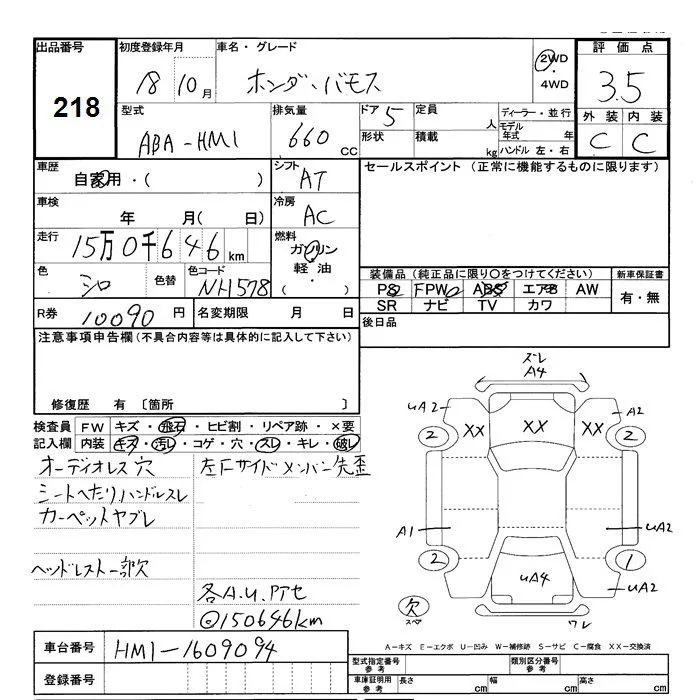 出品番号
218
初度登録年月
18 10月
車名・グレード
ホンダ・バモス
2WD
4WD
評価点
3.5
型式
ABA-HM1
排気量
660 CC
ドア 5
形状
定員 人
積載 kg
ディーラー・並行
モデル年式 年
ハンドル 左・右
外装 内装
C C
車歴
自家用・( )
シフト
AT
セールスポイント (正常に機能するものに限ります)
車検
年 月( 日)
冷房
AC
走行
15万0千646km
燃料
ガソリン
軽油
・( )
色
シロ
色替
色コード
NH578
装備品 (純正品に限り○をつけてください)
新車保証書
PS FPW ABS エアB AW
SR ナビ TV カワ
有・無
R券
10090 円
名変期限 月 日
後日品
注意事項申告欄 (不具合内容等は具体的に記入して下さい)
修復歴 有 〔箇所 〕
検査員記入欄
FW キズ・飛石・ヒビ割・リペア跡・×要
内装 キズ・汚レ・コゲ・穴・スレ・キレ・破レ
オーディオレス穴
左Fサイドメンバー先歪
シートヘたりハンドルスレ
カーペットヤブレ
ヘッドレスト一部欠
各A.U.アセ
◎150646km
ズレ
A4
UA2
A2
XX
XX
XX
2
2
A1
UA2
2
1
UA4
UA2
欠
スペア
ワレ
A-キズ E-エクボ U-凹み W-補修跡 S-サビ C-腐食 XX-交換済
車台番号
HM1-1609094
登録番号
型式指定番号 参考
類別区分番号 参考
車庫証明用 参考
長さ cm
幅 cm
高さ cm